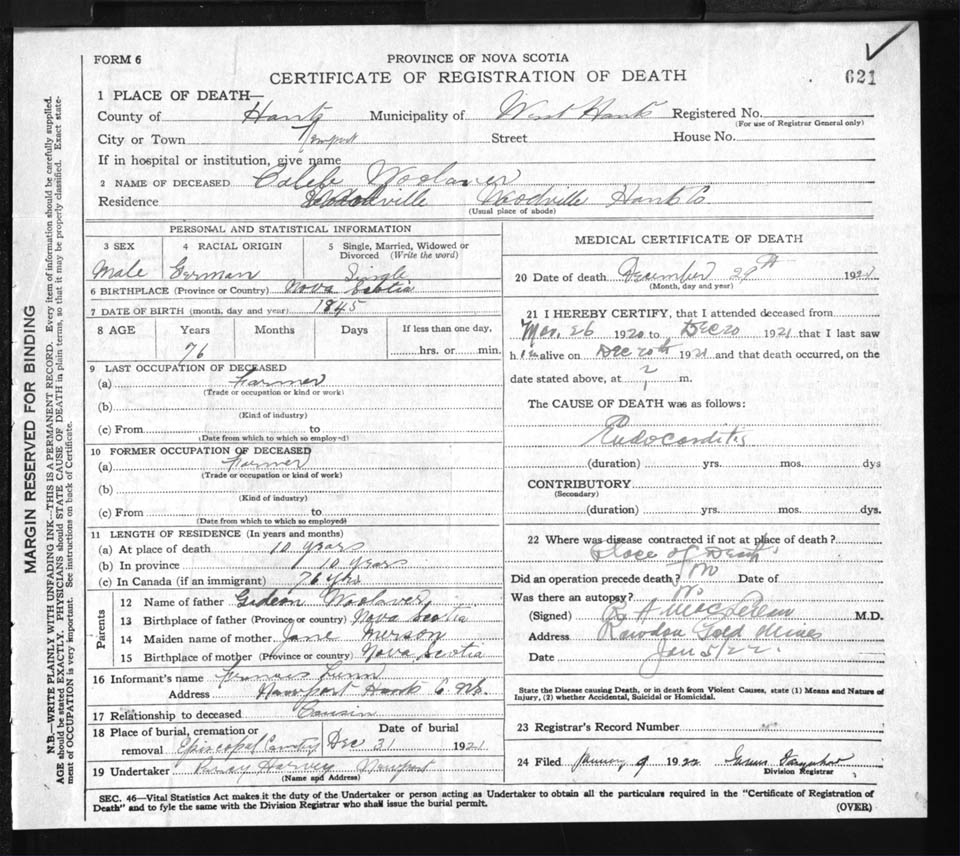 FORM 6
PROVINCE OF NOVA SCOTIA
CERTIFICATE OF REGISTRATION OF DEATH
621
1 PLACE OF DEATH—
County of Hants Municipality of West Hants Registered No.
(For use of Registrar General only)
City or Town Newport Street House No.
If in hospital or institution, give name
2 NAME OF DECEASED Caleb Woolaver
Residence Woodville Hants Co
(Usual place of abode)
PERSONAL AND STATISTICAL INFORMATION
3 SEX 4 RACIAL ORIGIN 5 Single, Married, Widowed or Divorced (Write the word)
Male German Single
6 BIRTHPLACE (Province or Country) Nova Scotia
7 DATE OF BIRTH (month, day and year) 1845
8 AGE Years Months Days If less than one day,
76 hrs. or min.
9 LAST OCCUPATION OF DECEASED
(a) Farmer
(Trade or occupation or kind or work)
(b)
(Kind of industry)
(c) From to
(Date from which to which so employed)
10 FORMER OCCUPATION OF DECEASED
(a) Farmer
(Trade or occupation or kind of work)
(b)
(Kind of industry)
(c) From to
(Date from which to which so employed)
11 LENGTH OF RESIDENCE (In years and months)
(a) At place of death 10 years
(b) In province 10 years
(c) In Canada (if an immigrant) 76 yrs
Parents
12 Name of father Gideon Woolaver
13 Birthplace of father (Province or country) Nova Scotia
14 Maiden name of mother Jane Merson
15 Birthplace of mother (Province or country) Nova Scotia
16 Informant's name Lunn
Address Newport Hants Co. N.S.
17 Relationship to deceased Cousin
18 Place of burial, cremation or removal Episcopal Date of burial Dec 31 1921
19 Undertaker Harvey Newport
(Name and Address)
MEDICAL CERTIFICATE OF DEATH
20 Date of death December 29th 1921
(Month, day and year)
21 I HEREBY CERTIFY, that I attended deceased from
Mar. 26 1920 to Dec 20 1921 that I last saw
h im alive on Dec 20th 1921 and that death occurred, on the
date stated above, at m.
The CAUSE OF DEATH was as follows:
Endocarditis
(duration) yrs. mos. dys
CONTRIBUTORY
(Secondary)
(duration) yrs. mos. dys.
22 Where was disease contracted if not at place of death?
Place of Death
Did an operation precede death? No Date of
Was there an autopsy? No
(Signed) M.D.
Address Rawdon Gold Mines
Date Jan 5/22.
State the Disease causing Death, or in death from Violent Causes, state (1) Means and Nature of
Injury, (2) whether Accidental, Suicidal or Homicidal.
23 Registrar's Record Number
24 Filed January 9 1922
Division Registrar
SEC. 46—Vital Statistics Act makes it the duty of the Undertaker or person acting as Undertaker to obtain all the particulars required in the "Certificate of Registration of
Death" and to fyle the same with the Division Registrar who shall issue the burial permit.
(OVER)
MARGIN RESERVED FOR BINDING
N.B.—WRITE PLAINLY WITH UNFADING INK—THIS IS A PERMANENT RECORD. Every item of information should be carefully supplied.
AGE should be stated EXACTLY. PHYSICIANS should STATE CAUSE OF DEATH in plain terms, so that it may be properly classified. Exact state-
ment of OCCUPATION is very important. See instructions on back of Certificate.